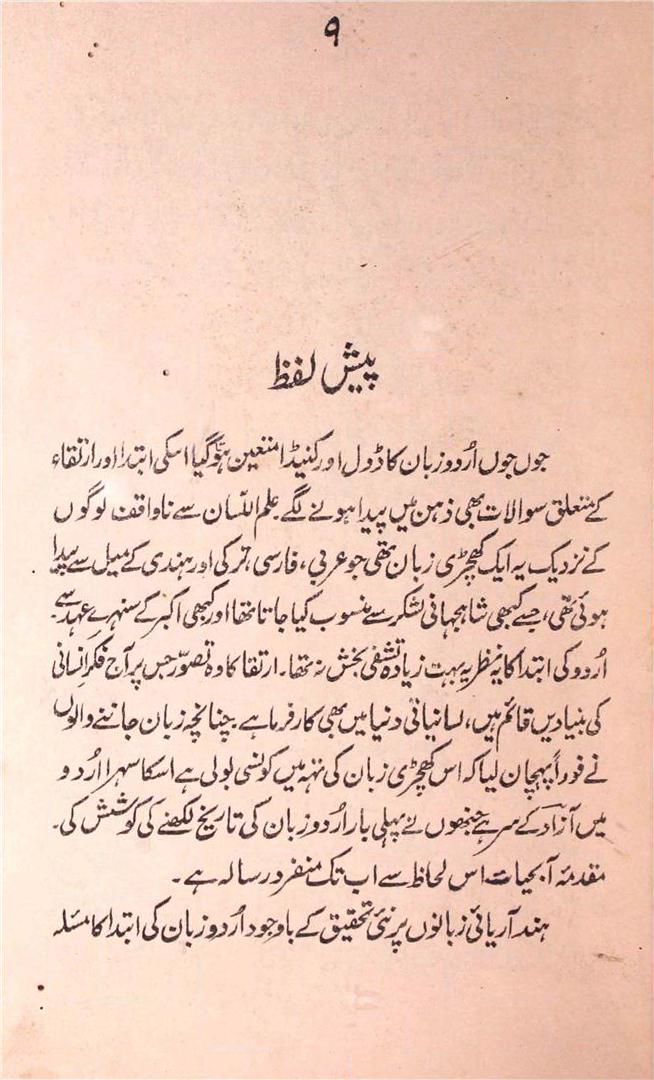 ۹
پیش لفظ
جوں جوں اُردو زبان کا ڈول اور کنیڈا متعین ہوتا گیا اسکی ابتدا اور ارتقاء
کے متعلق سوالات بھی ذہن میں پیدا ہونے لگے۔ علم اللّسان سے ناواقف لوگوں
کے نزدیک یہ ایک کھچڑی زبان تھی جو عربی، فارسی، ترکی اور ہندی کے میل سے پیدا
ہوئی تھی، جسے کبھی شاہجہانی لشکر سے منسوب کیا جاتا تھا اور کبھی اکبر کے سنہرے عہد سے۔
اُردو کی ابتدا کا یہ نظریہ بہت زیادہ تشفی بخش نہ تھا۔ ارتقا کا وہ تصوّر جس پر آج فکرِ انسانی
کی بنیادیں قائم ہیں، لسانیاتی دنیا میں بھی کارفرما ہے۔ چنانچہ زبان جاننے والوں
نے فوراً پہچان لیا کہ اس کھچڑی زبان کی تہہ میں کونسی بولی ہے اسکا سہرا اُردو
میں آزاد کے سر ہے جنھوں نے پہلی بار اُردو زبان کی تاریخ لکھنے کی کوشش کی۔
مقدمۂ آبحیات اس لحاظ سے اب تک منفرد رسالہ ہے۔
ہند آریائی زبانوں پر نئی تحقیق کے باوجود اُردو زبان کی ابتدا کا مسئلہ